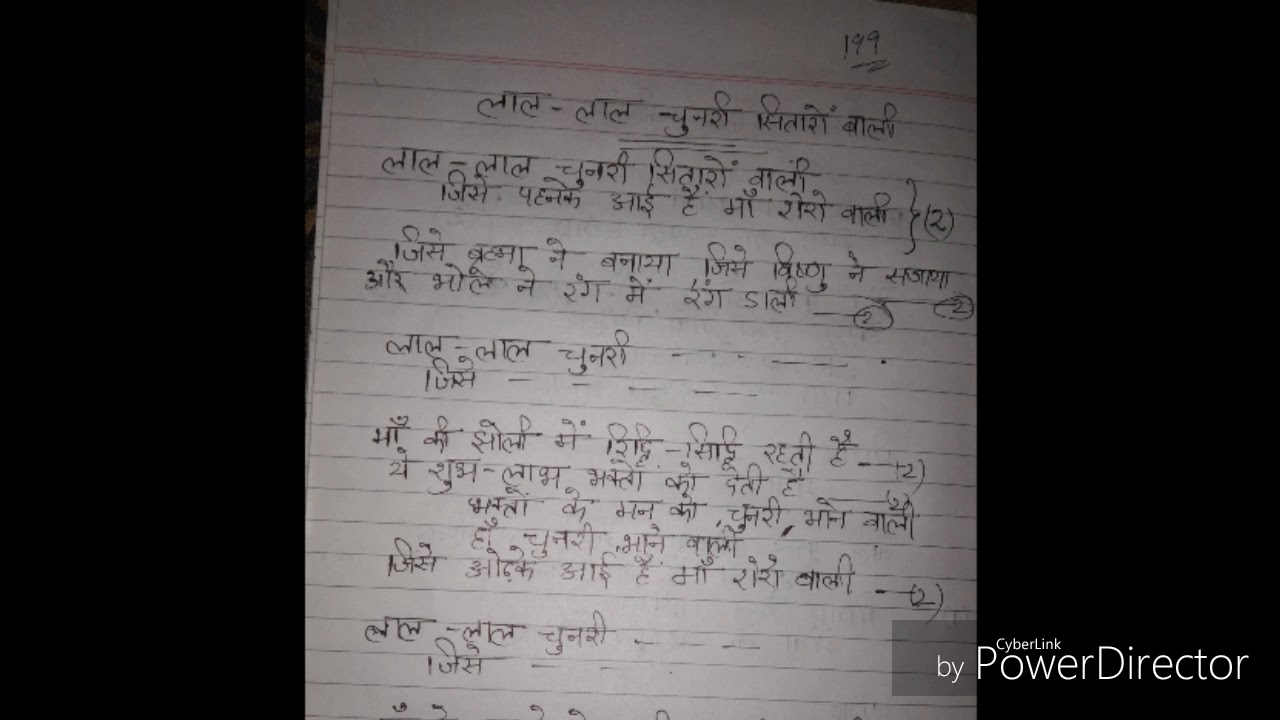 199
लाल-लाल चुनरी सितारों वाली
लाल-लाल चुनरी सितारों वाली
जिसे पहनके आई है माँ शेरों वाली }(2)
जिसे ब्रह्मा ने बनाया जिसे विष्णु ने सजाया —(2)
और भोले ने रंग में रंग डाली —(2)
लाल-लाल चुनरी - - - — — .
जिसे - - — —
माँ की झोली में रिद्धि-सिद्धि रहती है —(2)
ये शुभ-लाभ भक्तों को देती है —(2)
भक्तों के मन को, चुनरी, भाने वाली
हाँ चुनरी भाने वाली
जिसे ओढ़के आई है माँ शेरों वाली —(2)
लाल-लाल चुनरी - - — —
जिसे — - -
CyberLink
by PowerDirector